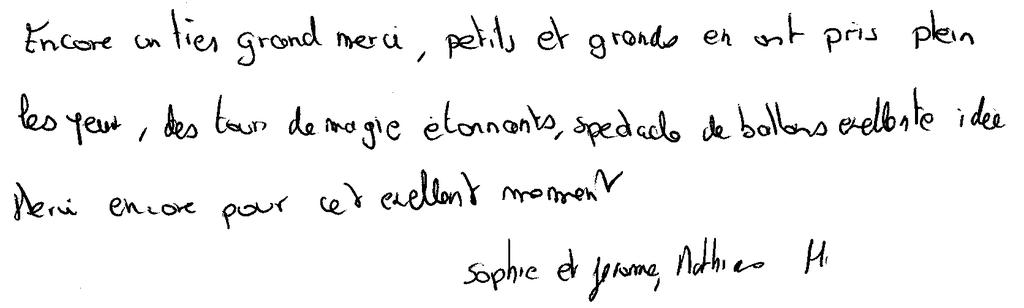 Encore un très grand merci, petits et grands en ont pris plein
les yeux, des tours de magie étonnants, spectacle de ballons exellente idée
Merci encore pour cet exellent moment
Sophie et Jerome, Mathieu H.